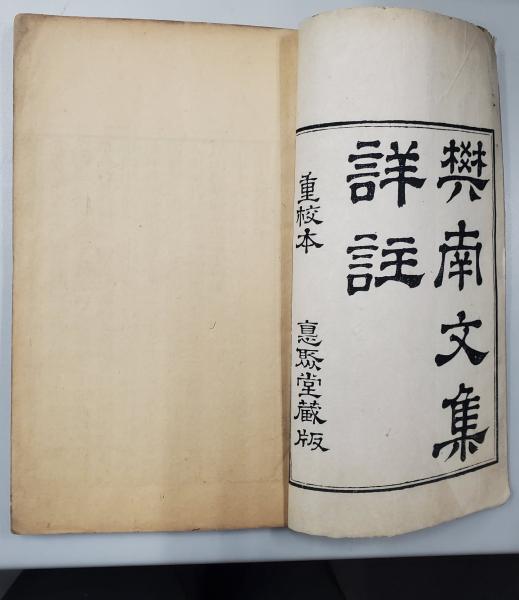 樊南文集
詳註
重校本 悳聚堂藏版